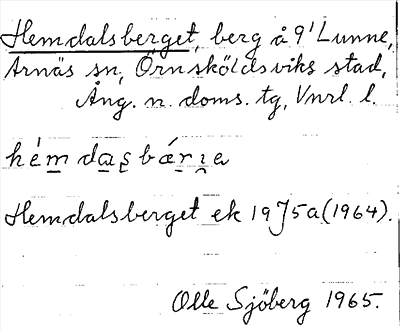 Hemdalsberget, berg å 9¹ Lunne,
Arnäs sn, Örnsköldsviks stad,
Ång. n. doms. tg, Vnrl. l.
hémdasbǽrıa
Hemdalsberget ek 19J5a (1964).
Olle Sjöberg 1965.